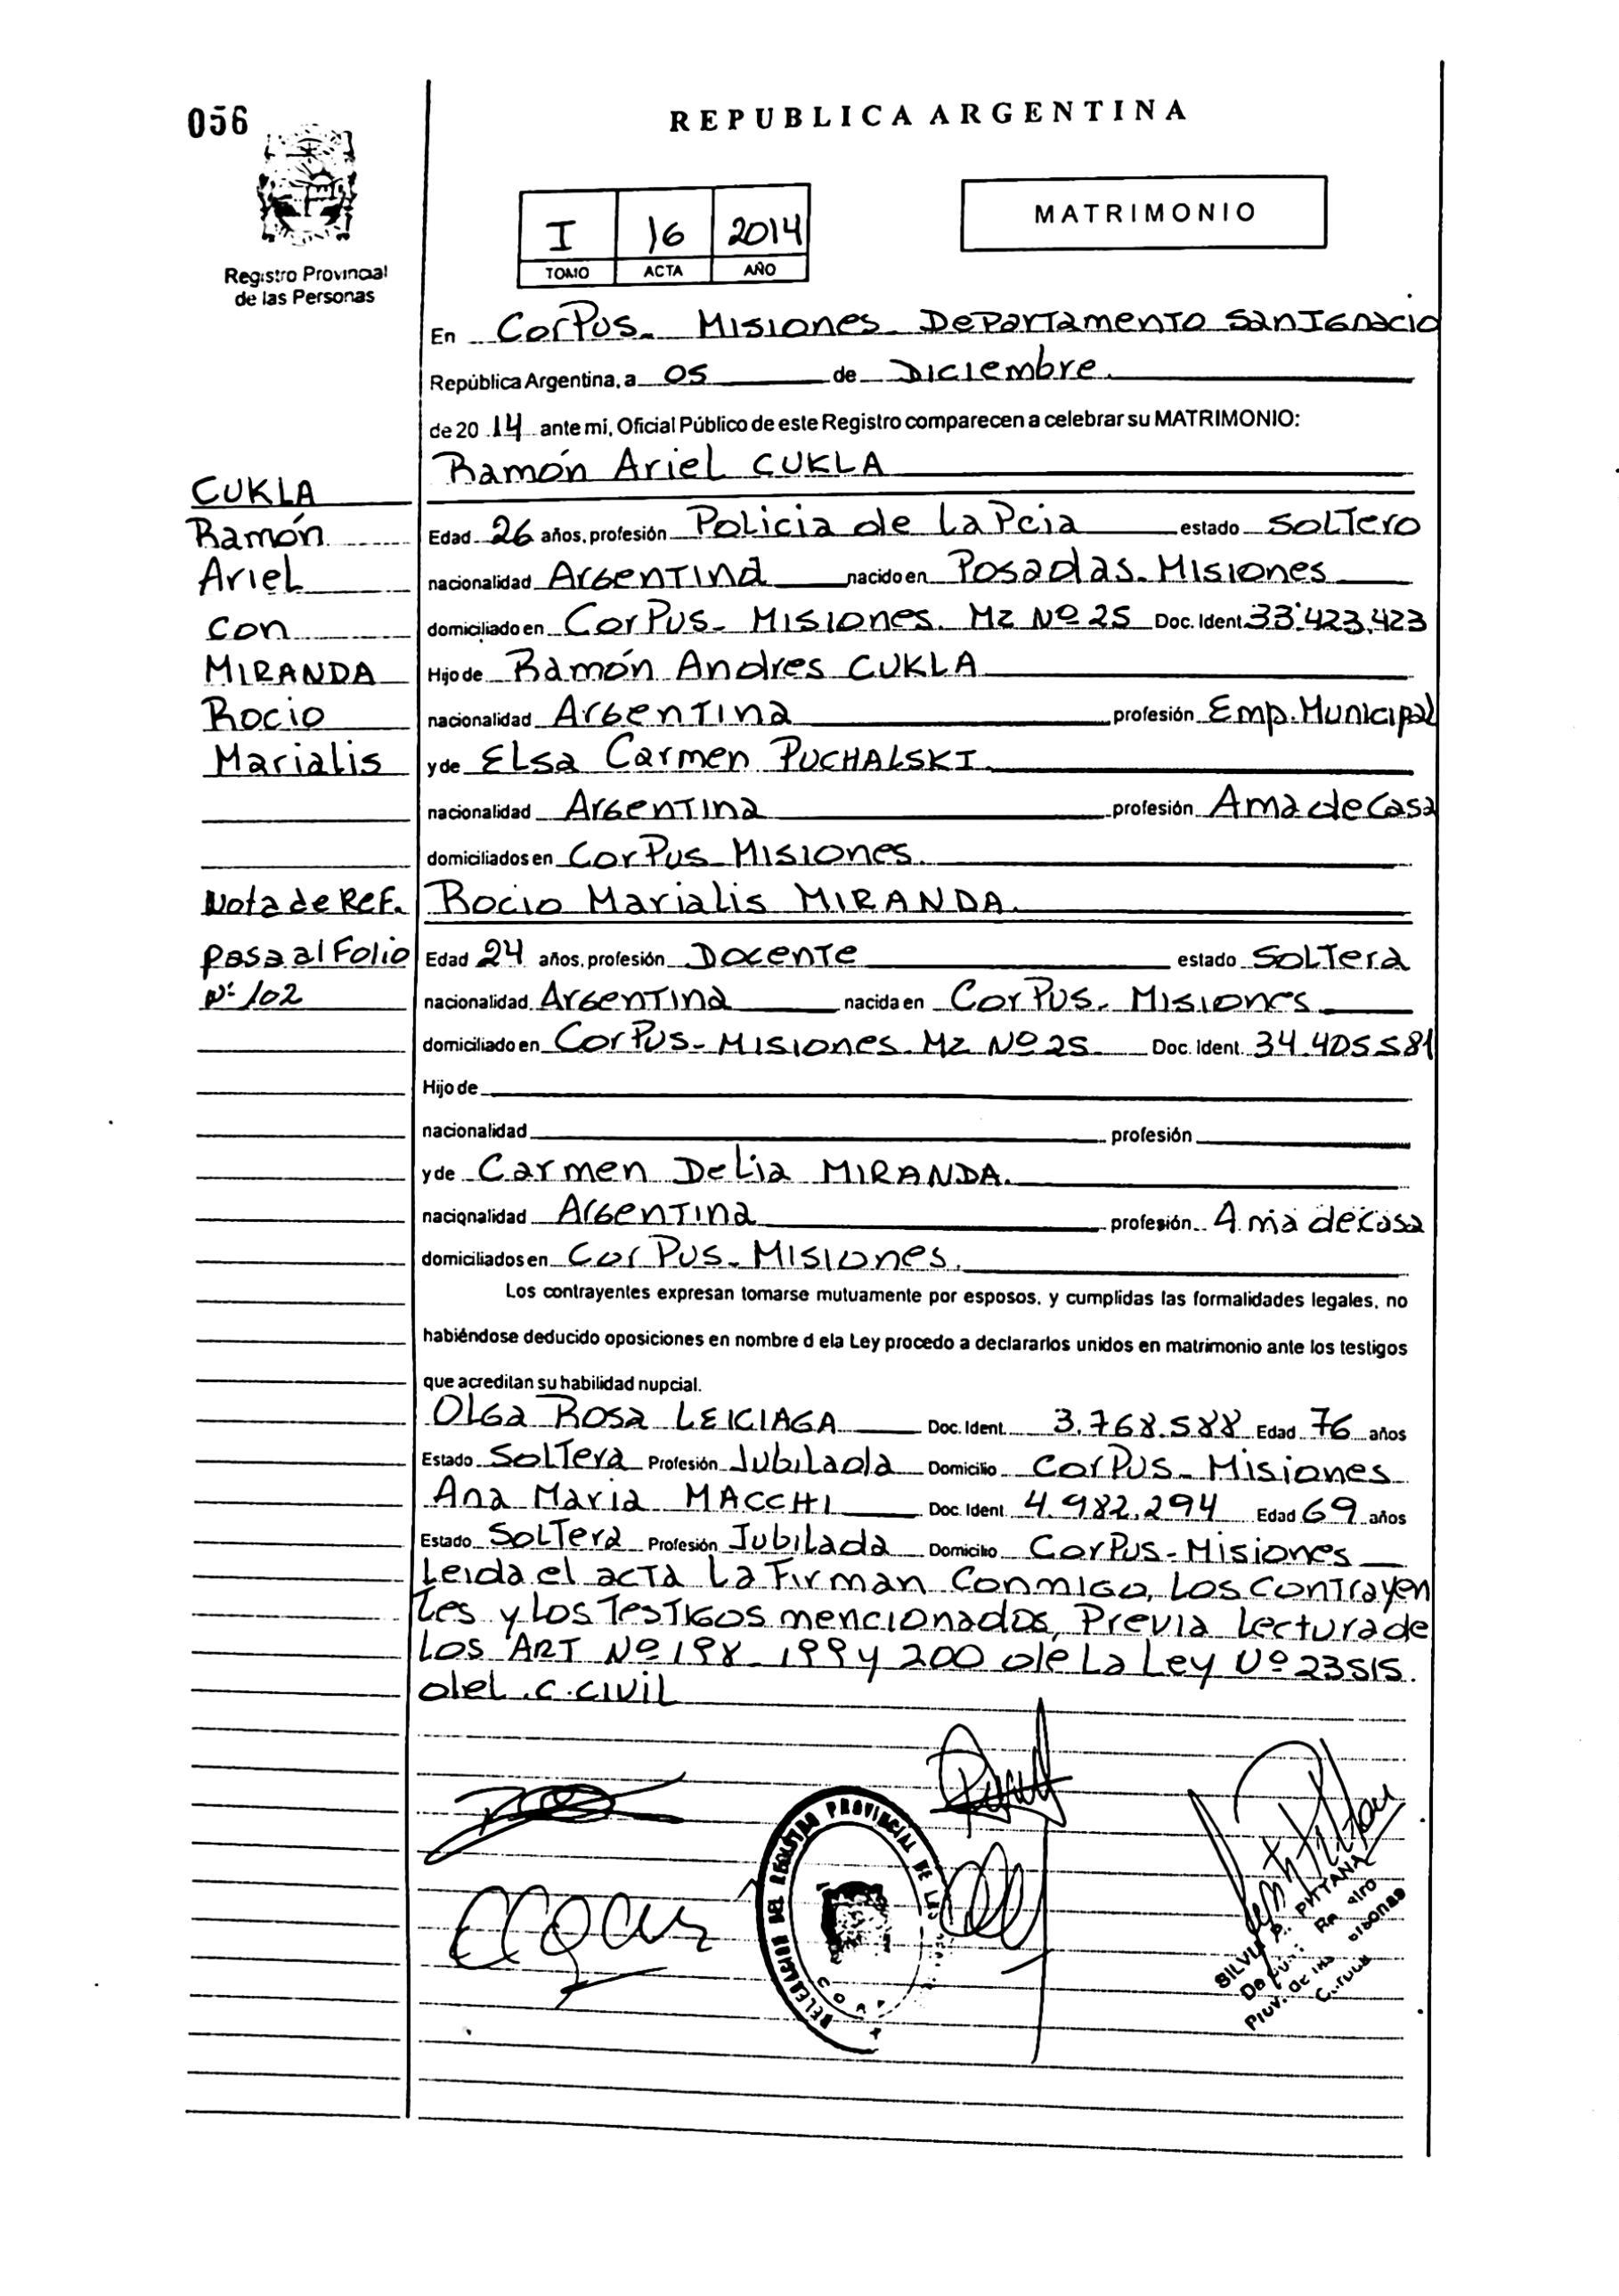 056
REPUBLICA ARGENTINA
I 16 2014
TOMO ACTA AÑO
MATRIMONIO
Registro Provincial
de las Personas
En Corpus. Misiones. Departamento San Ignacio
República Argentina, a 05 de Diciembre.
de 20 14 ante mi, Oficial Público de este Registro comparecen a celebrar su MATRIMONIO:
Ramón Ariel CUKLA
CUKLA
Ramón
Ariel
con
MIRANDA
Rocio
Marialis
Edad 26 años, profesión Policia de La Pcia estado Soltero
nacionalidad Argentina nacido en Posadas. Misiones
domiciliado en Corpus- Misiones. Mz Nº 25 Doc. Ident. 33.423.423
Hijo de Ramón Andres CUKLA
nacionalidad Argentina profesión Emp. Municipal
y de Elsa Carmen PUCHALSKI
nacionalidad Argentina profesión Ama de Casa
domiciliados en Corpus-Misiones.
Nota de Ref.
pasa al Folio
Nº 102
Rocio Marialis MIRANDA.
Edad 24 años, profesión Docente estado Soltera
nacionalidad Argentina nacida en Corpus. Misiones
domiciliado en Corpus- Misiones. Mz Nº 25 Doc. Ident. 34.405581
Hijo de
nacionalidad profesión
y de Carmen Delia MIRANDA.
nacionalidad Argentina profesión Ama de Casa
domiciliados en Corpus-Misiones.
Los contrayentes expresan tomarse mutuamente por esposos, y cumplidas las formalidades legales, no
habiéndose deducido oposiciones en nombre d ela Ley procedo a declararlos unidos en matrimonio ante los testigos
que acreditan su habilidad nupcial.
Olga Rosa LEICIAGA Doc. Ident. 3.768.588 Edad 76 años
Estado Soltera Profesión Jubilada Domicilio Corpus- Misiones
Ana Maria MACCHI Doc. Ident 4.982.294 Edad 69 años
Estado Soltera Profesión Jubilada Domicilio Corpus-Misiones
Leida el acta La Firman Conmigo, Los Contrayen
tes y Los Testigos mencionados, Previa Lectura de
Los ART Nº 198- 199 y 200 de La Ley Nº 23515.
del .c.civil
DELEGACION DEL REGISTRO PROVINCIAL DE LAS
SILVI P. PITTANA